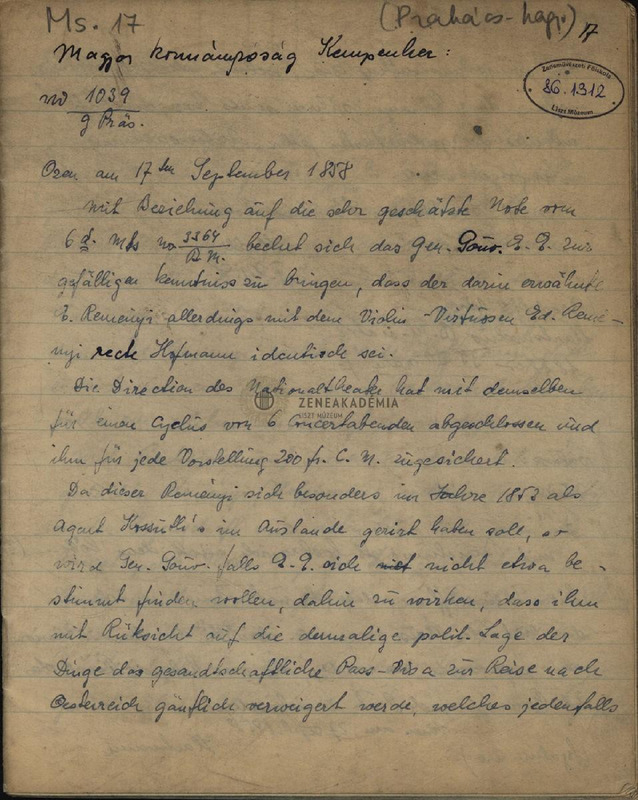 Ms. 17
(Prahács-hagy.) 17
Magyar kormányzóság Kempenhez:
Zeneművészeti Főiskola
86.1312
Liszt Múzeum
no 1039
9 Präs.
Ofen am 17ten September 1858
Mit Beziehung auf die sehr geschätzte Note vom
6 d. Mts no 3364 beehrt sich das Gen. Gouv. E. E. zur
B. M.
gefälligen Kenntniss zu bringen, dass der darin erwähnte
E. Reményi allerdings mit dem Violin-Virtuosen Ed. Remé-
nyi recte Hofmann identisch sei.
Die Direction des Nationaltheater hat mit demselben
ZENEAKADÉMIA
LISZT MÚZEUM
für einen Cyclus von 6 Concertabenden abgeschlossen und
ihm für jede Vorstellung 200 fr. C. M. zugesichert.
Da dieser Reményi sich besonders im Jahre 1853 als
Agent Kossuth's im Auslande gerirt haben soll, so
wird Gen. Gouv. falls E. E. sich nicht etwa be-
stimmt finden wollen, dahin zu wirken, dass ihm
mit Rüksicht auf die dermalige polit. Lage der
Dinge das gesandtschaftliche Pass-Visa zur Reise nach
Oesterreich gänzlich verweigert werde, welches jedenfalls